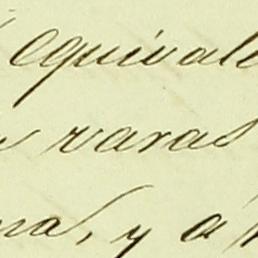 equivale
varas
na, y a